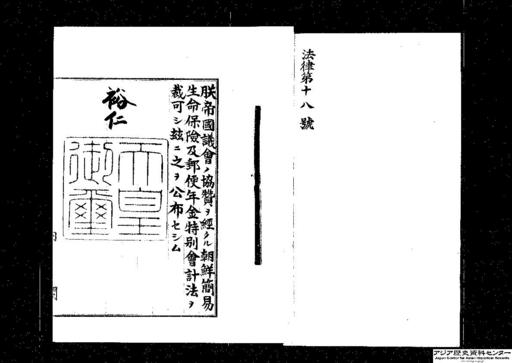 法律第十八號
朕帝國議會ノ協贊ヲ經タル朝鮮簡易
生命保險及郵便年金特別會計法ヲ
裁可シ玆ニ之ヲ公布セシム
裕仁
天皇
御璽
アジア歴史資料センター
Japan Center for Asian Historical Records